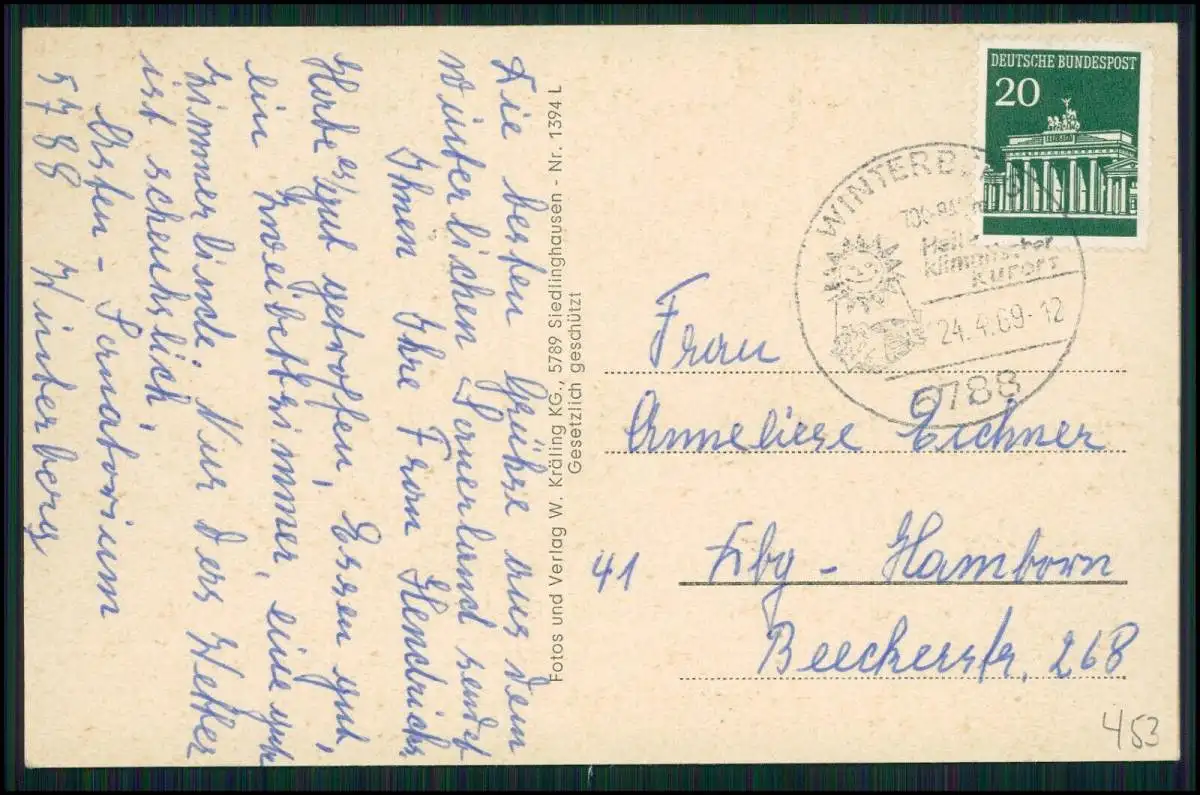 Die besten Grühse aus dem
winterlichen Sauerland sendet
Ihnen Ihre Frau Hendrichs
Habe es gut getroffen, Essen gut,
ein Zweibettzimmer, eine gute
Zimmerlinde. Nur das Wetter
ist scheuhslich.
Asten - Sanatorium
5788 Winterberg
Fotos und Verlag W. Kräling KG., 5789 Siedlinghausen - Nr. 1394 L
Gesetzlich geschützt
DEUTSCHE BUNDESPOST
20
WINTERBERG
Heil
klimatischer
Kurort
24.4.69-12
5788
Frau
Anneliese Eichner
41 Dbg - Hamborn
Beeckerstr. 268
453